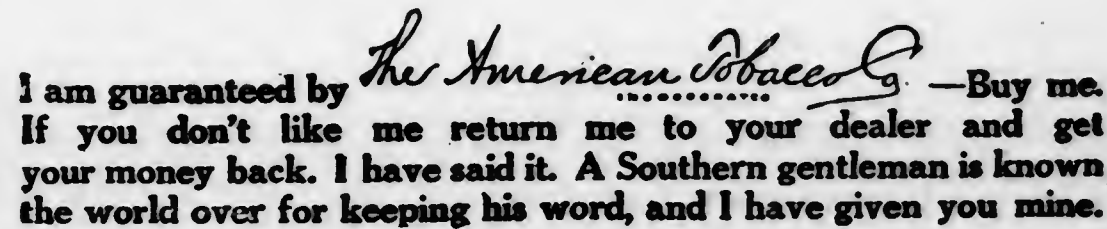 I am guaranteed by The American Tobacco Co. —Buy me.
If you don't like me return me to your dealer and get
your money back. I have said it. A Southern gentleman is known
the world over for keeping his word, and I have given you mine.